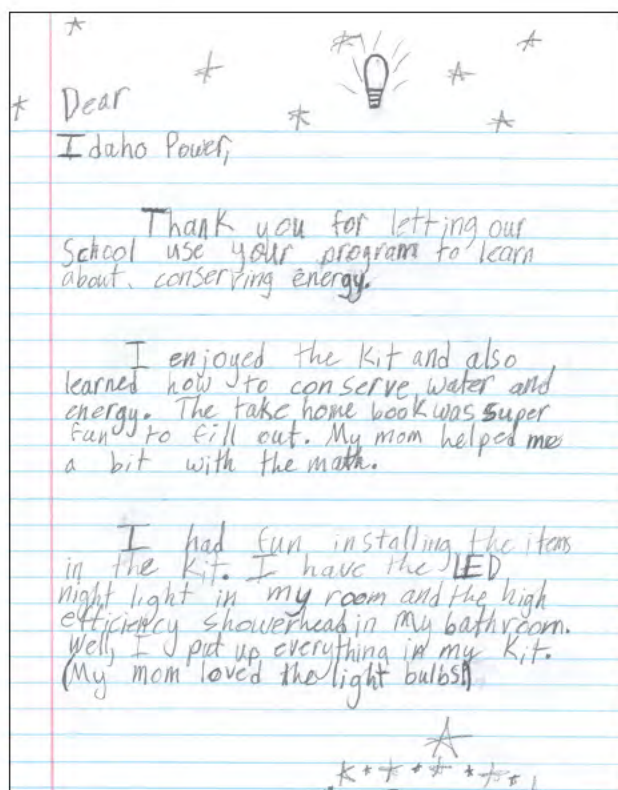 Dear
Idaho Power,
Thank you for letting our
School use your program to learn
about. conserving energy.
I enjoyed the kit and also
learned how to conserve water and
energy. The take home book was super
fun to fill out. My mom helped me
a bit with the math.
I had fun installing the items
in the kit. I have the LED
night light in my room and the high
efficiency showerhead in my bathroom.
Well, I put up everything in my kit.
(My mom loved the light bulbs!)